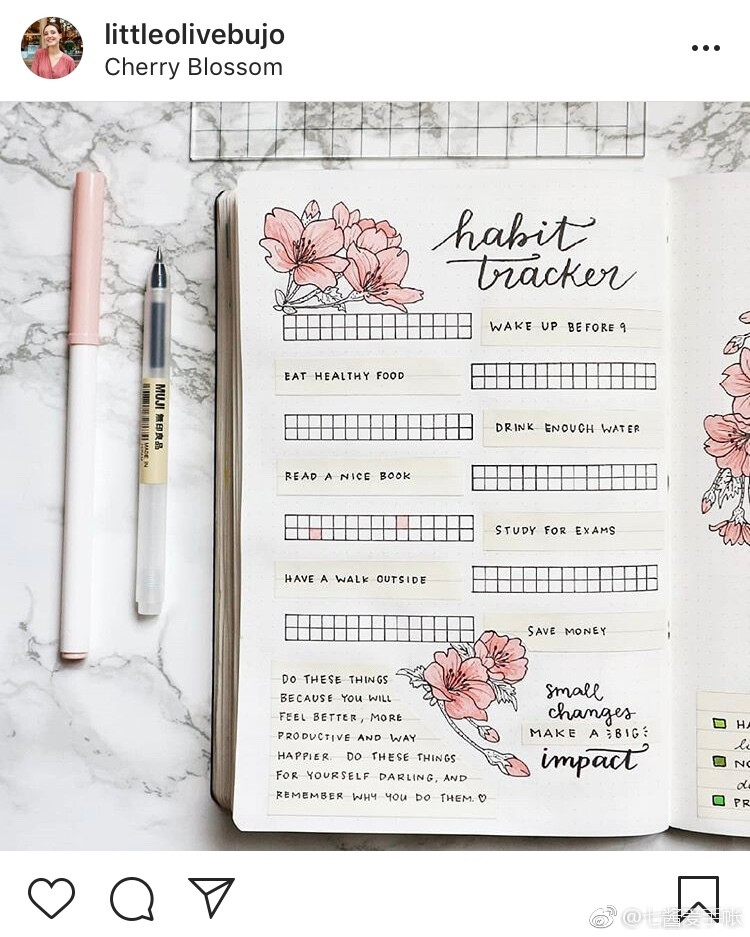 littleolivebujo
Cherry Blossom
habit
tracker
WAKE UP BEFORE 9
EAT HEALTHY FOOD
DRINK ENOUGH WATER
READ A NICE BOOK
STUDY FOR EXAMS
HAVE A WALK OUTSIDE
SAVE MONEY
DO THESE THINGS
BECAUSE YOU WILL
FEEL BETTER, MORE
PRODUCTIVE AND WAY
HAPPIER. DO THESE THINGS
FOR YOURSELF DARLING, AND
REMEMBER WHY YOU DO THEM. ♡
small
changes
MAKE A BIG
impact
MUJI 無印良品
MADE IN
HA
li
NO
do
PR
@七酱爱手帐